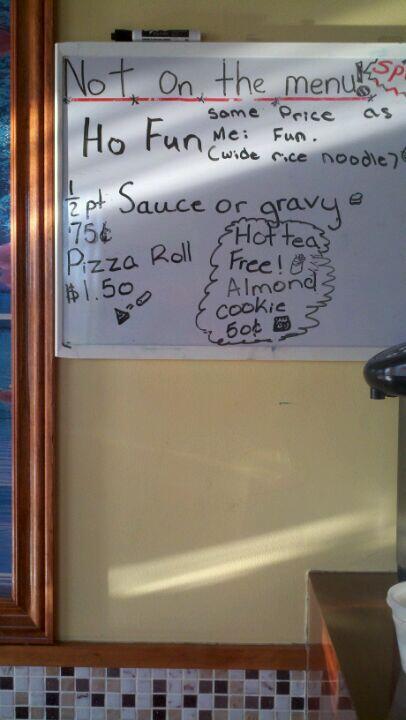 Not on the menu!
Sp
Ho Fun
same Price as
Me: Fun.
(wide rice noodle)
1/2 pt Sauce or gravy
75¢
Pizza Roll
$1.50
Hot tea
Free!
Almond
cookie
50¢